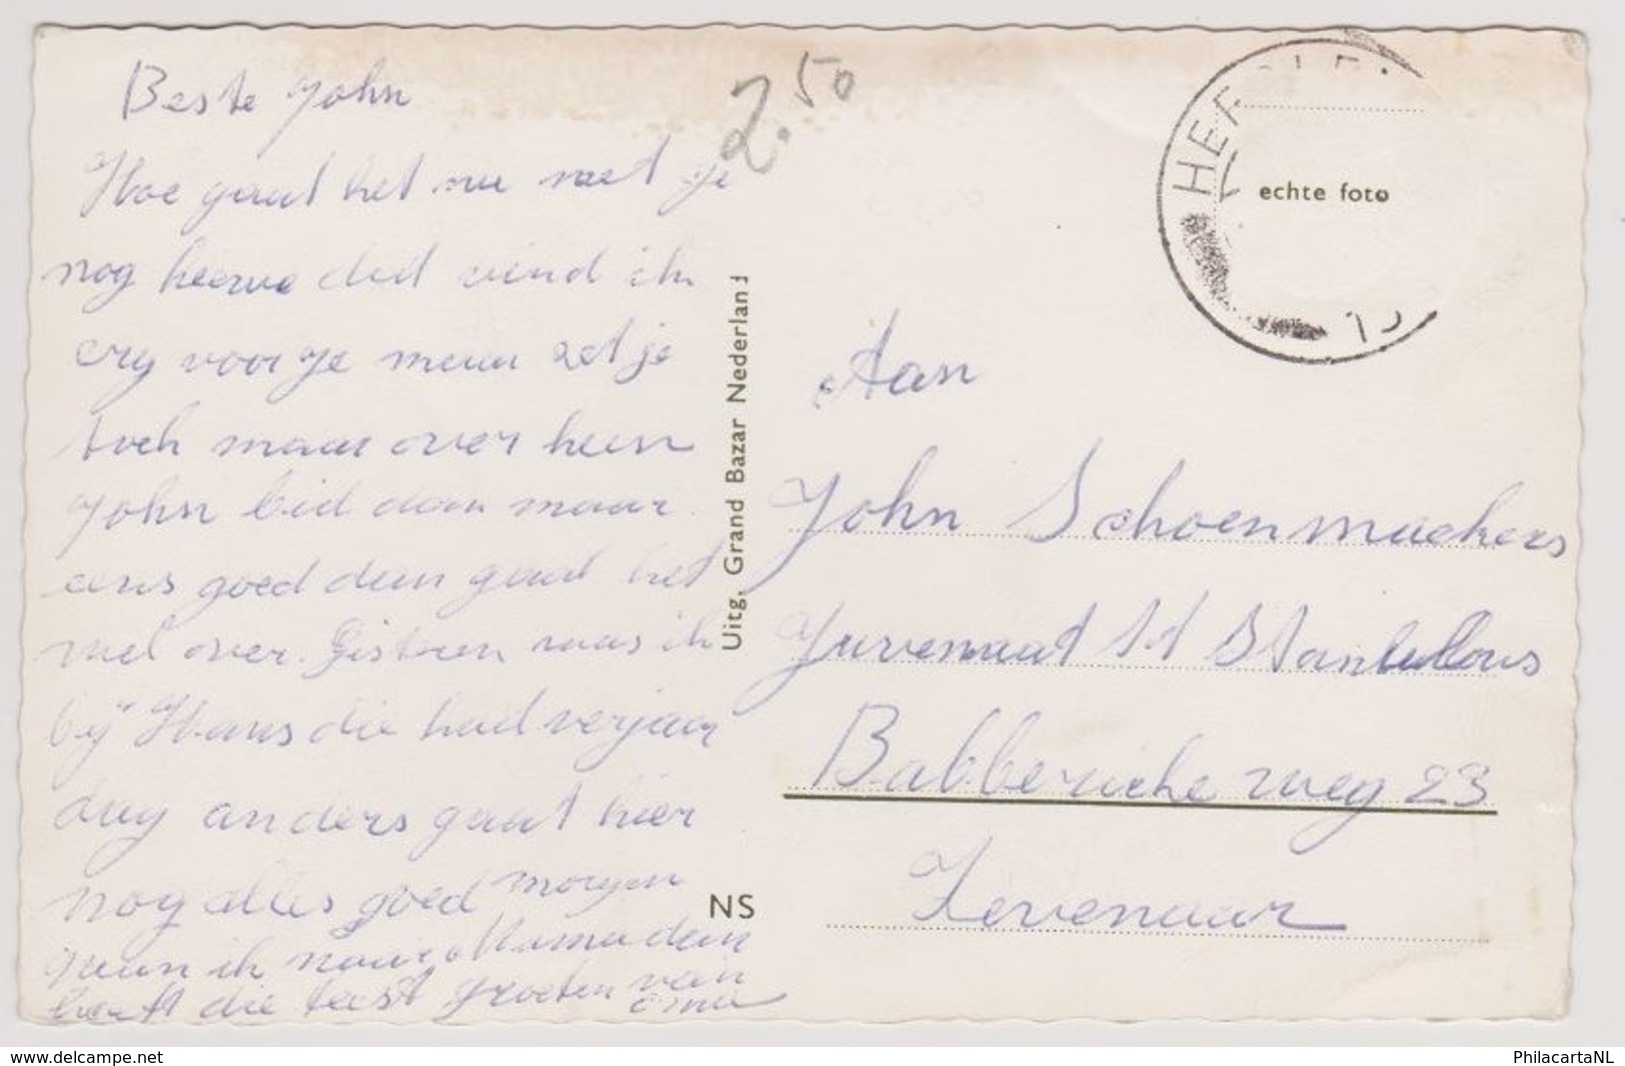 Beste John
Hoe gaat het nu met je
nog heerwe dat vind ik
erg voor je maar zet je
toch maar over heen
John bid dan maar
eens goed dan gaat het
wel over. Gisteren was ik
bij Hans die had verjaar
dag anders gaat hier
nog alles goed morgen
gaan ik naar Mama dan
heeft die feest groeten van
oma
2.50
Uitg. Grand Bazar Nederland
NS
echte foto
HEE
Aan
John Schoenmackers
Juvenaat St Stanislous
Babberiche weg 23
Zevenaar
www.delcampe.net
PhilacartaNL